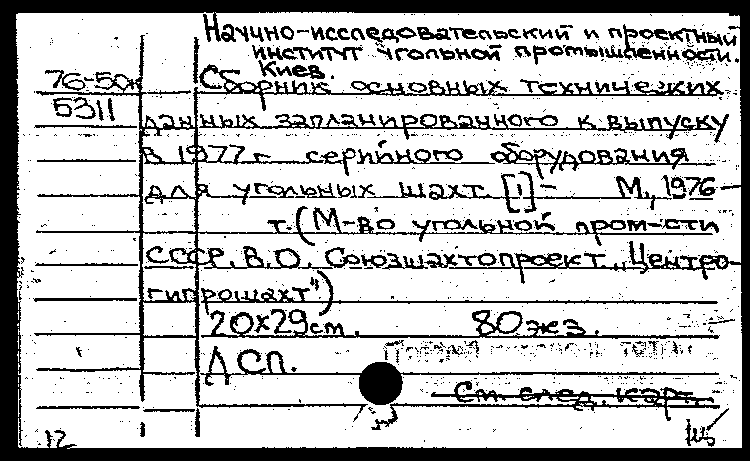 Научно-исследовательский и проектный
институт угольной промышленности.
Киев.
76-50к Сборник основных технических
5311 данных запланированного к выпуску
в 1977 г. серийного оборудования
для угольных шахт. [1] - М., 1976 -
т. (М-во угольной пром-сти
СССР. В.О. Союзшахтопроект. „Центро-
гипрошахт")
20х29 см. 80 экз.
ДСП.
См. след. карт.
12